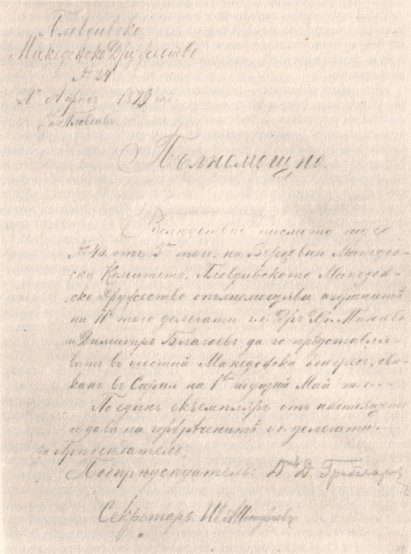 Пловдивско
Македонско Дружество
№ 34
Април 1899 год
гр. Пловдив
Пълномощно.
Вследствие писмото под
№ от того, на Върховния Македон-
ски Комитетъ, Пловдивското Македон-
ско Дружество опълномощава избранитѣ
на того делегати г.г. Д-ръ
и Димитръ Благоевъ да го прѣдставля-
ватъ въ шестий Македонски конгресъ, сви-
канъ въ София на идущий Май т. г.
По единъ екземпляръ отъ настоящето
се дава на горѣречените г.г. делегати.
за Прѣдседатель,
Подпрѣдседатель: Д.
Секретарь: Ив.